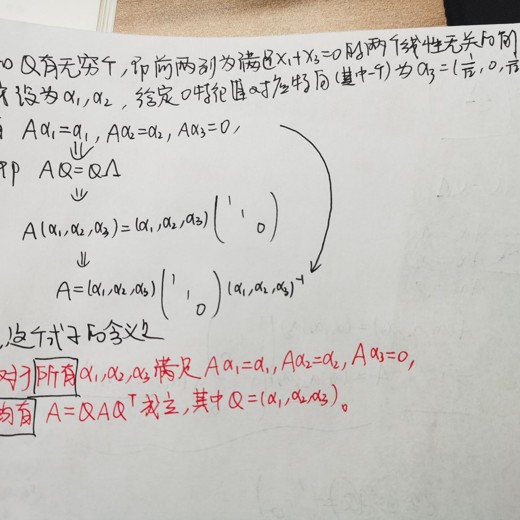 Q有无穷个,即前两列为满足x₁+x₃=0的两个线性无关的向
设为α₁,α₂,给定0特征值对应特向(其中一个)为α₃=(1/√2,0,1/√2
Aα₁=α₁,Aα₂=α₂,Aα₃=0,
⇓
即 AQ=QΛ
⇓
A(α₁,α₂,α₃)=(α₁,α₂,α₃)(1 1 0)
⇓
A=(α₁,α₂,α₃)(1 1 0)(α₁,α₂,α₃)⁻¹
这个式子的含义是
对于所有α₁,α₂,α₃满足Aα₁=α₁,Aα₂=α₂,Aα₃=0,
均有 A=QΛQᵀ成立,其中Q=(α₁,α₂,α₃)。